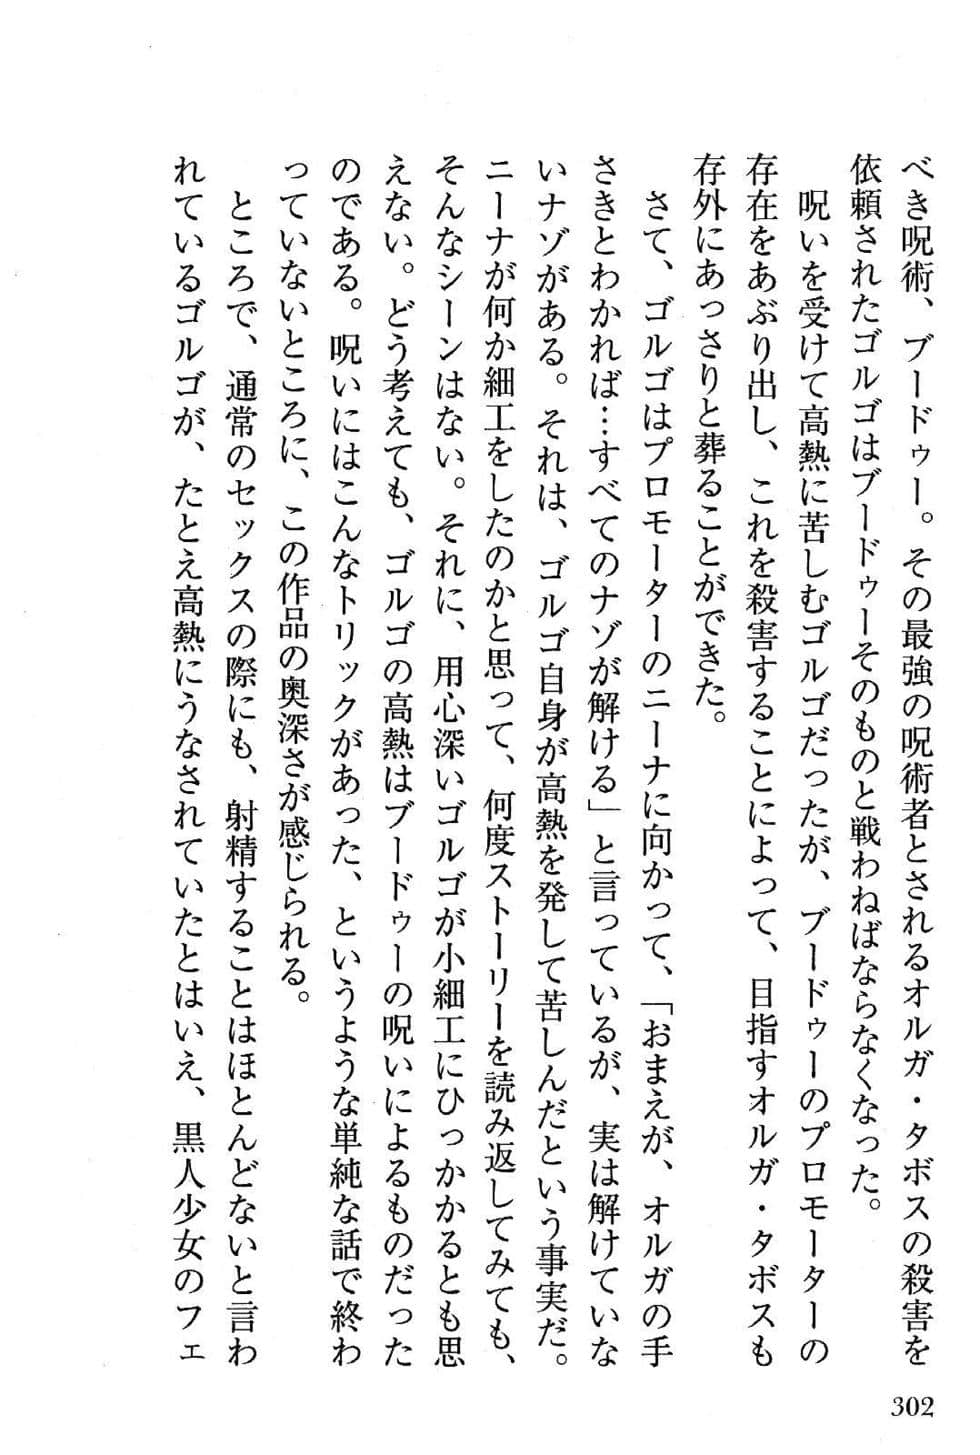 べき呪術、ブードゥー。その最強の呪術者とされるオルガ・タボスの殺害を
依頼されたゴルゴはブードゥーそのものと戦わねばならなくなった。
呪いを受けて高熱に苦しむゴルゴだったが、ブードゥーのプロモーターの
存在をあぶり出し、これを殺害することによって、目指すオルガ・タボスも
存外にあっさりと葬ることができた。
さて、ゴルゴはプロモーターのニーナに向かって、「おまえが、オルガの手
さきとわかれば…すべてのナゾが解ける」と言っているが、実は解けていな
いナゾがある。それは、ゴルゴ自身が高熱を発して苦しんだという事実だ。
ニーナが何か細工をしたのかと思って、何度ストーリーを読み返してみても、
そんなシーンはない。それに、用心深いゴルゴが小細工にひっかかるとも思
えない。どう考えても、ゴルゴの高熱はブードゥーの呪いによるものだった
のである。呪いにはこんなトリックがあった、というような単純な話で終わ
っていないところに、この作品の奥深さが感じられる。
ところで、通常のセックスの際にも、射精することはほとんどないと言わ
れているゴルゴが、たとえ高熱にうなされていたとはいえ、黒人少女のフェ
302